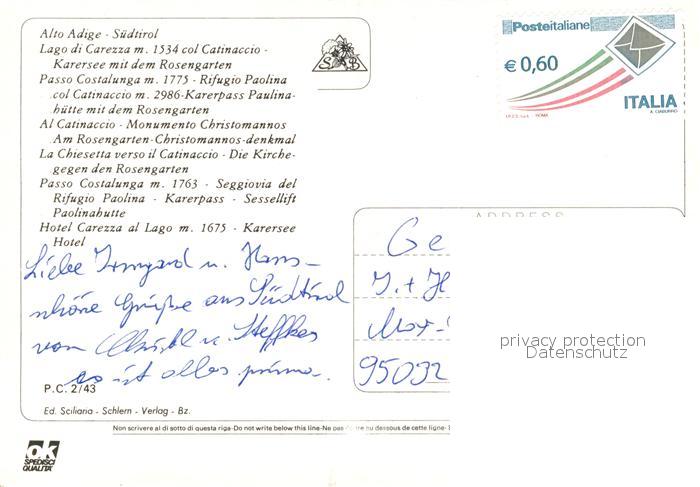 Alto Adige - Südtirol
Lago di Carezza m. 1534 col Catinaccio -
Karersee mit dem Rosengarten
Passo Costalunga m. 1775 - Rifugio Paolina
col Catinaccio m. 2986-Karerpass Paulina-
hütte mit dem Rosengarten
Al Catinaccio - Monumento Christomannos
Am Rosengarten-Christomannos-denkmal
La Chiesetta verso il Catinaccio - Die Kirche-
gegen den Rosengarten
Passo Costalunga m. 1763 - Seggiovia del
Rifugio Paolina - Karerpass - Sessellift
Paolinahutte
Hotel Carezza al Lago m. 1675 - Karersee
Hotel
S B
Posteitaliane
€ 0,60
ITALIA
A. CIABURRO
I.P.Z.S. S.p.A. - ROMA
Liebe Irmgard u. Hans -
schöne Grüße aus Südtirol
von Christl u. Steffkes
es ist alles prima.
P.C. 2/43
Ed. Sciliaria - Schlern - Verlag - Bz.
ADDRESS
Ge
I. + H
Max-
95032
privacy protection
Datenschutz
Non scrivere al di sotto di questa riga-Do not write below this line-Ne pas au dessous de cette ligne-
ok
SPEDISCI
QUALITA'